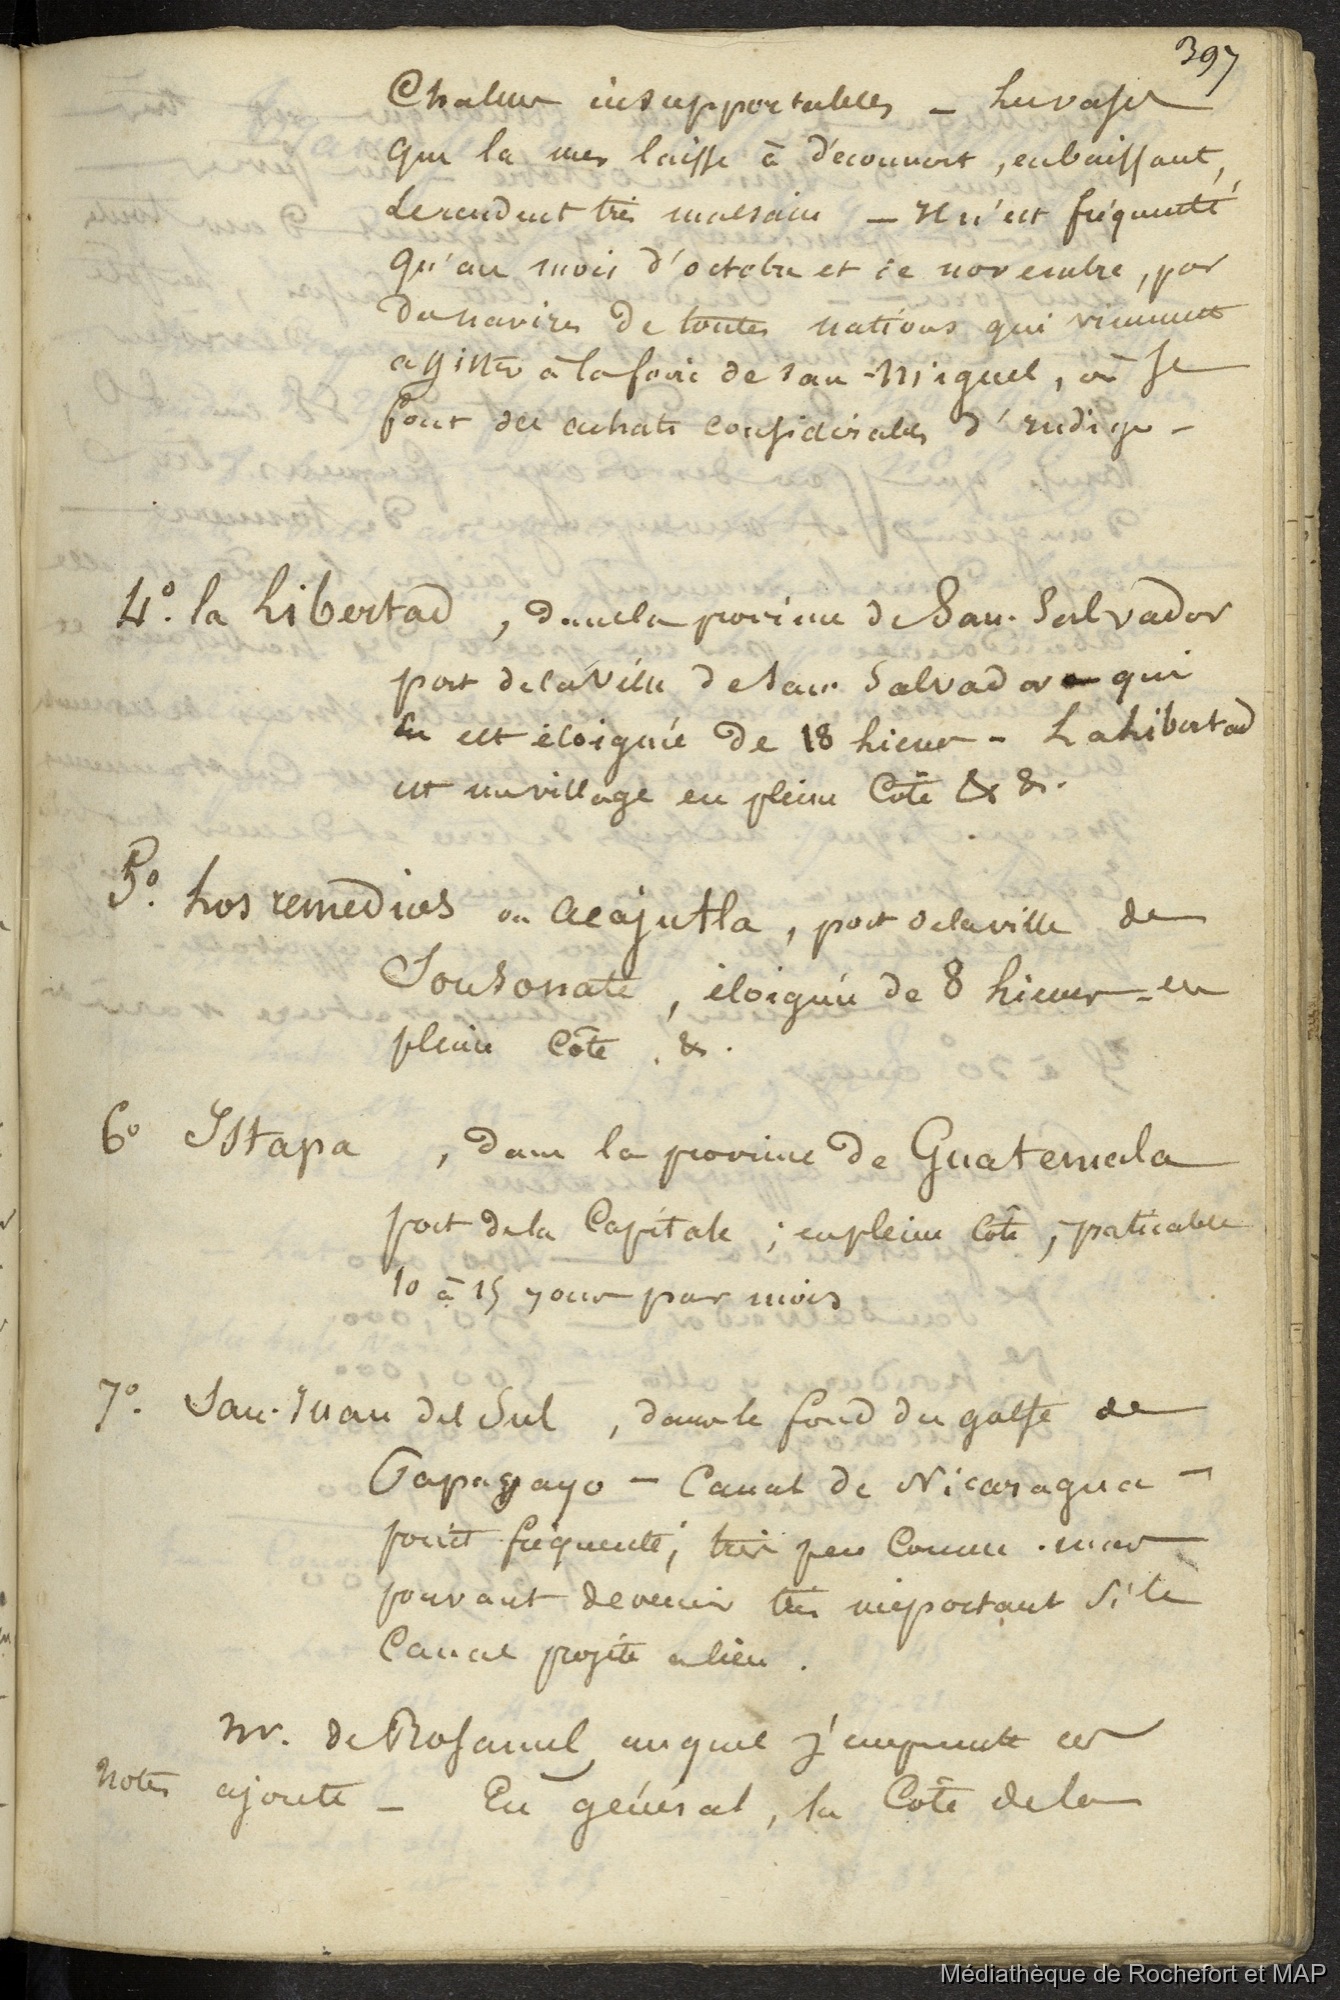 397
Chaleur insupportables – Les vases
que la mer laisse à découvert, en baissant,
le rendent très malsain – Il n'est fréquenté
qu'au mois d'octobre et de novembre, par
des navires de toutes nations qui viennent
assister à la foire de San-Miguel, où se
font des achats considérables d'Indigo –
4º. la Libertad, dans la province de San-Salvador
port de la ville de San Salvador qui
en est éloignée de 18 lieues – La Libertad
est un village en pleine Côte & &.
5º. Los remedios ou Acajutla, port de la ville de
Sonsonate, éloignée de 8 lieues – en
pleine Côte, &.
6º Istapa, dans la province de Guatemala
port de la Capitale ; en pleine Côte, praticable
10 à 15 jours par mois
7º. San-Juan del Sul, dans le fond du golfe de
Papagayo – Canal de Nicaragua –
fréquenté ; très peu Connu. mais
pouvant devenir très important si le
Canal projeté a lieu.
Mr. de Rosamel auquel j'emprunte ces
notes ajoute – En général, la Côte de la
Médiathèque de Rochefort et MAP